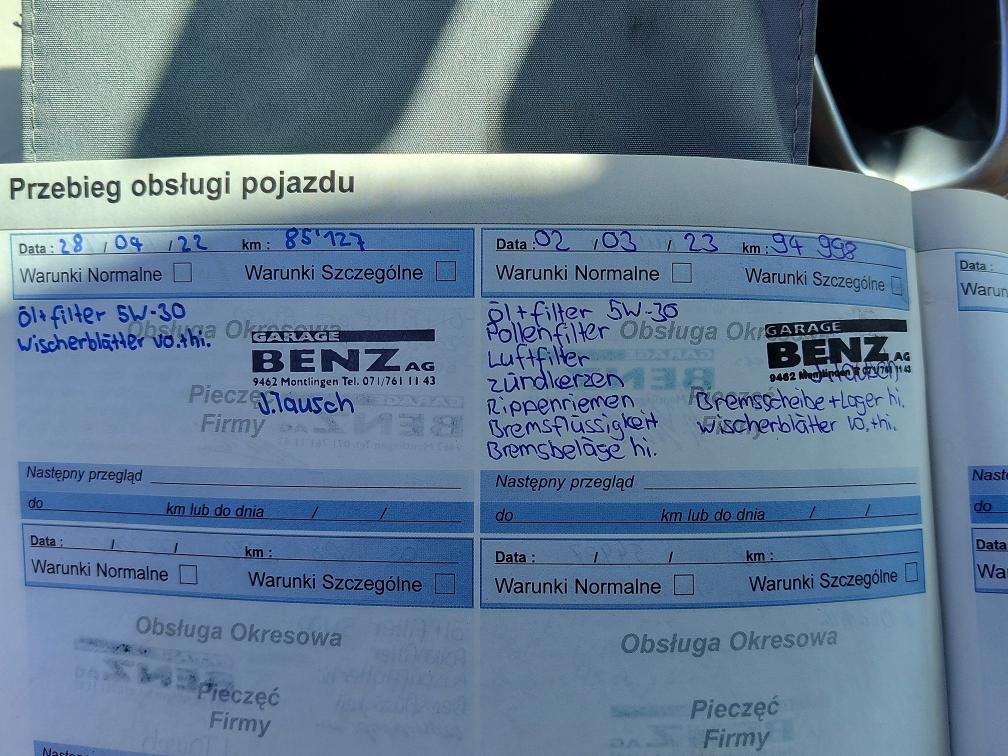 Przebieg obsługi pojazdu
Data : 28 / 04 / 22 km : 85'127
Warunki Normalne Warunki Szczególne
öl+filter 5W-30
Wischerblätter vo.thi.
Obsługa Okresowa
GARAGE
BENZ AG
9462 Montlingen Tel. 071/761 11 43
Pieczęć
J.Tausch
Firmy
Następny przegląd
do km lub do dnia / /
Data : 02 / 03 / 23 km : 94 998
Warunki Normalne Warunki Szczególne
öl+filter 5W-30
Pollenfilter
Luftfilter
Zündkerzen
Rippenriemen
Bremsflüssigkeit
Bremsbeläge hi.
Obsługa
GARAGE
BENZ AG
9462 Montlingen 071/761 11 43
Bremsscheibe+Lager hi.
Wischerblätter vo.thi.
Firmy
Następny przegląd
do km lub do dnia / /
Data : / / km :
Warunki Normalne Warunki Szczególne
Obsługa Okresowa
BENZ AG
Pieczęć
Firmy
Data : / / km :
Warunki Normalne Warunki Szczególne
Obsługa Okresowa
Pieczęć
Firmy
Data :
Warun
Nast
do
Data
Wa